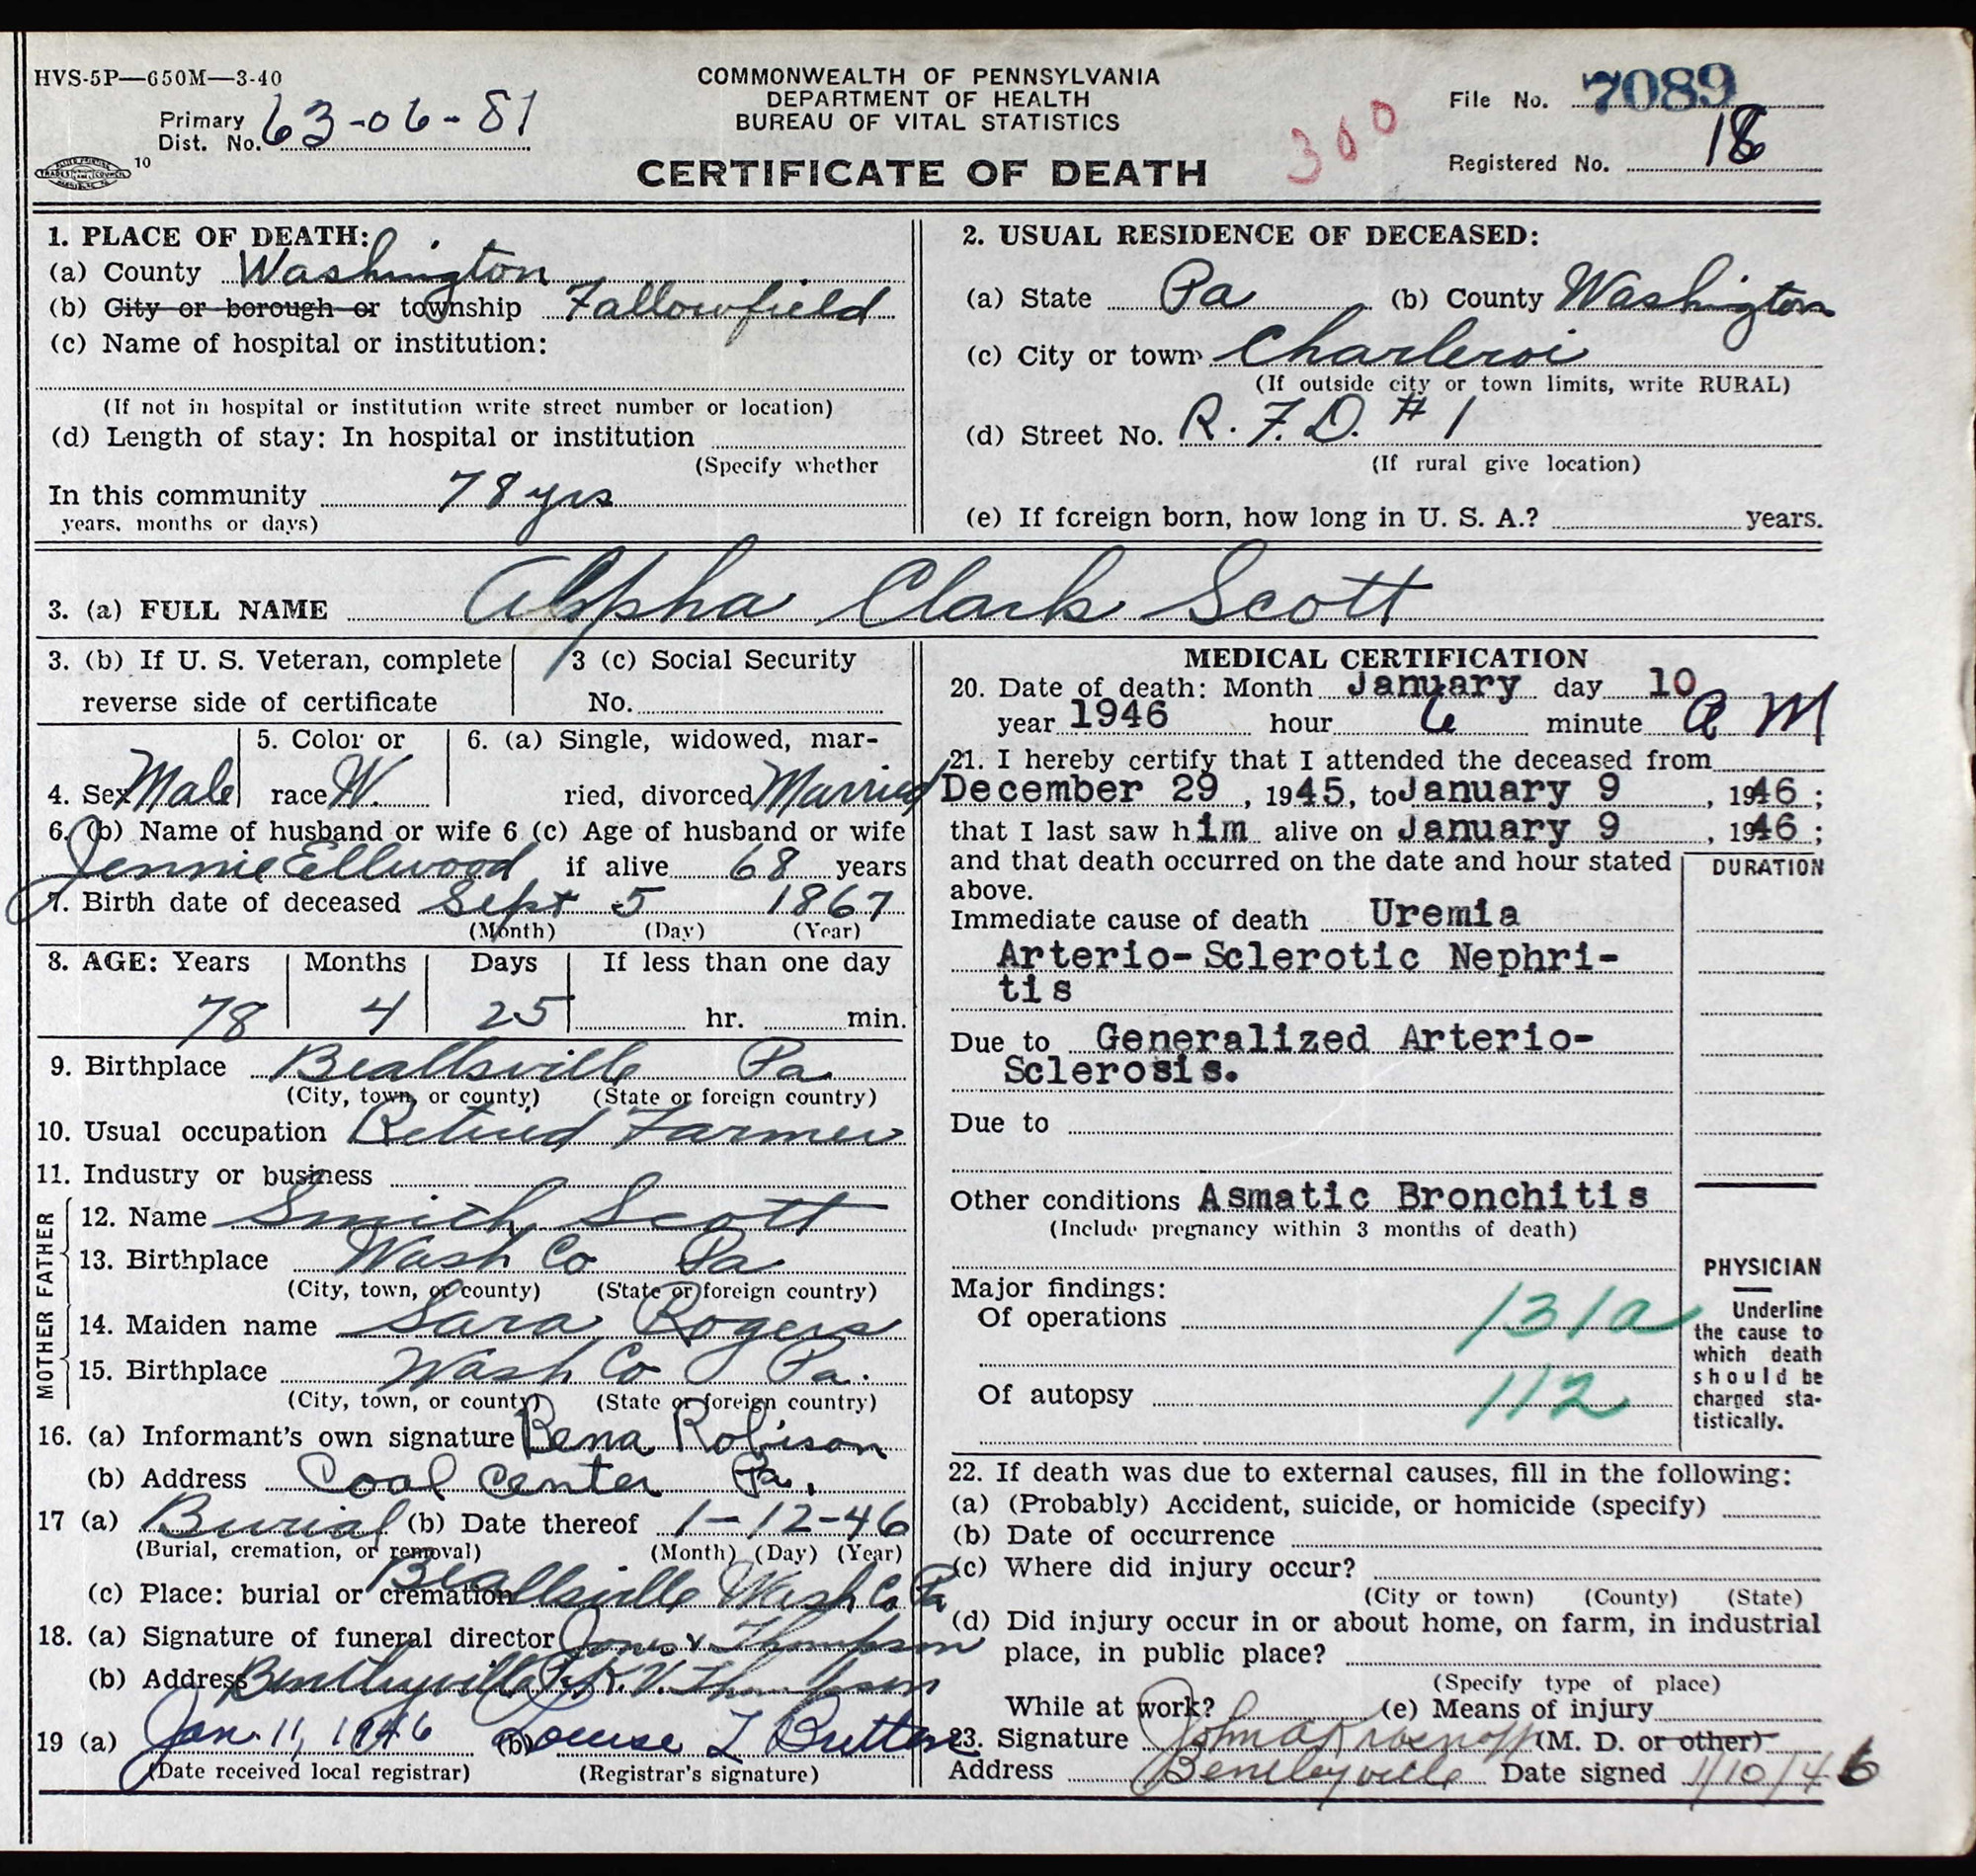 HVS-5P—650M—3-40
COMMONWEALTH OF PENNSYLVANIA
DEPARTMENT OF HEALTH
BUREAU OF VITAL STATISTICS
CERTIFICATE OF DEATH
Primary
Dist. No. 63-06-81
10
300
File No. 7089
Registered No. 18
1. PLACE OF DEATH:
(a) County Washington
(b) City or borough or township Fallowfield
(c) Name of hospital or institution:
(If not in hospital or institution write street number or location)
(d) Length of stay: In hospital or institution
(Specify whether
In this community 78 yrs
years, months or days)
2. USUAL RESIDENCE OF DECEASED:
(a) State Pa (b) County Washington
(c) City or town Charleroi
(If outside city or town limits, write RURAL)
(d) Street No. R.F.D. #1
(If rural give location)
(e) If foreign born, how long in U. S. A.? years.
3. (a) FULL NAME Alpha Clark Scott
3. (b) If U. S. Veteran, complete
reverse side of certificate
3 (c) Social Security
No.
4. Sex Male
5. Color or
race W.
6. (a) Single, widowed, mar-
ried, divorced Married
6. (b) Name of husband or wife
Jennie Ellwood
6 (c) Age of husband or wife
if alive 68 years
7. Birth date of deceased Sept 5 1867
(Month) (Day) (Year)
8. AGE: Years Months Days If less than one day
78 4 25 hr. min.
9. Birthplace Beallsville Pa
(City, town, or county) (State or foreign country)
10. Usual occupation Retired Farmer
11. Industry or business
FATHER
12. Name Smith Scott
13. Birthplace Wash Co Pa
(City, town, or county) (State or foreign country)
MOTHER
14. Maiden name Sara Rogers
15. Birthplace Wash Co Pa.
(City, town, or county) (State or foreign country)
16. (a) Informant's own signature Bena Robison
(b) Address Coal Center Pa.
17 (a) Burial (b) Date thereof 1-12-46
(Burial, cremation, or removal) (Month) (Day) (Year)
(c) Place: burial or cremation Beallsville Wash Co Pa
18. (a) Signature of funeral director Jones & Thompson
(b) Address Bentleyville Pa. K. V. Thompson
19 (a) Jan. 11, 1946 (b) Louise L
(Date received local registrar) (Registrar's signature)
MEDICAL CERTIFICATION
20. Date of death: Month January day 10
year 1946 hour 6 minute A M
21. I hereby certify that I attended the deceased from
December 29, 1945, to January 9, 1946;
that I last saw him alive on January 9, 1946;
and that death occurred on the date and hour stated
above.
DURATION
Immediate cause of death Uremia
Arterio-Sclerotic Nephri-
tis
Due to Generalized Arterio-
Sclerosis.
Due to
Other conditions Asmatic Bronchitis
(Include pregnancy within 3 months of death)
Major findings:
Of operations 131a
Of autopsy 112
PHYSICIAN
Underline
the cause to
which death
should be
charged sta-
tistically.
22. If death was due to external causes, fill in the following:
(a) (Probably) Accident, suicide, or homicide (specify)
(b) Date of occurrence
(c) Where did injury occur?
(City or town) (County) (State)
(d) Did injury occur in or about home, on farm, in industrial
place, in public place?
(Specify type of place)
While at work? (e) Means of injury
23. Signature John A (M. D. or other)
Address Bentleyville Date signed 1/10/46